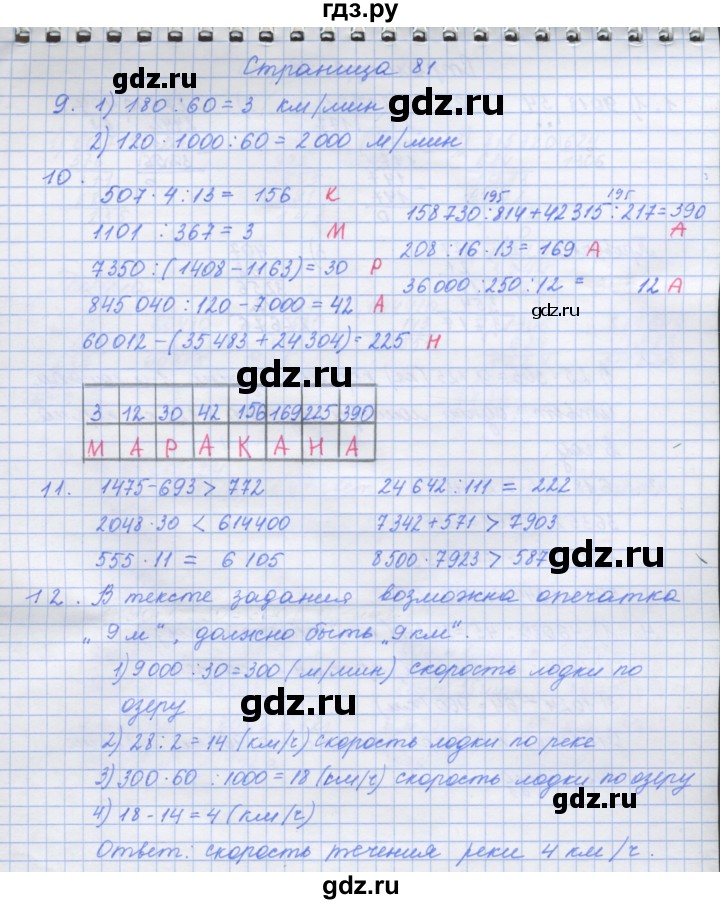 гдз.ру
Страница 81
9. 1) 180 : 60 = 3 км/мин
2) 120 · 1000 : 60 = 2000 м/мин
10.
507 · 4 : 13 = 156 К
1101 : 367 = 3 М
7350 : (1408 - 1163) = 30 Р
845 040 : 120 - 7000 = 42 А
60 012 - (35 483 + 24 304) = 225 Н
195 195
158 730 : 814 + 42 315 : 217 = 390
А
208 : 16 · 13 = 169 А
36 000 : 250 : 12 = 12 А
3 12 30 42 156 169 225 390
М А Р А К А Н А
11. 1475 - 693 > 772
2048 · 30 < 614400
555 · 11 = 6 105
24 642 : 111 = 222
7342 + 571 > 7903
8500 · 7923 > 587
12. В тексте задания возможна опечатка
„9 м“, должно быть „9 км“.
1) 9000 : 30 = 300 (м/мин) скорость лодки по
озеру
2) 28 : 2 = 14 (км/ч) скорость лодки по реке
3) 300 · 60 : 1000 = 18 (км/ч) скорость лодки по озеру
4) 18 - 14 = 4 (км/ч)
Ответ: скорость течения реки 4 км/ч.
gdz.ru
gdz.ru
gdz.ru
gdz.ru
gdz.ru
gdz.ru
gdz.ru
gdz.ru
gdz.ru